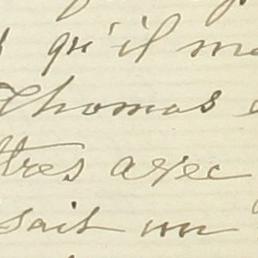 qu'il
Thomas
tres avec
sait un